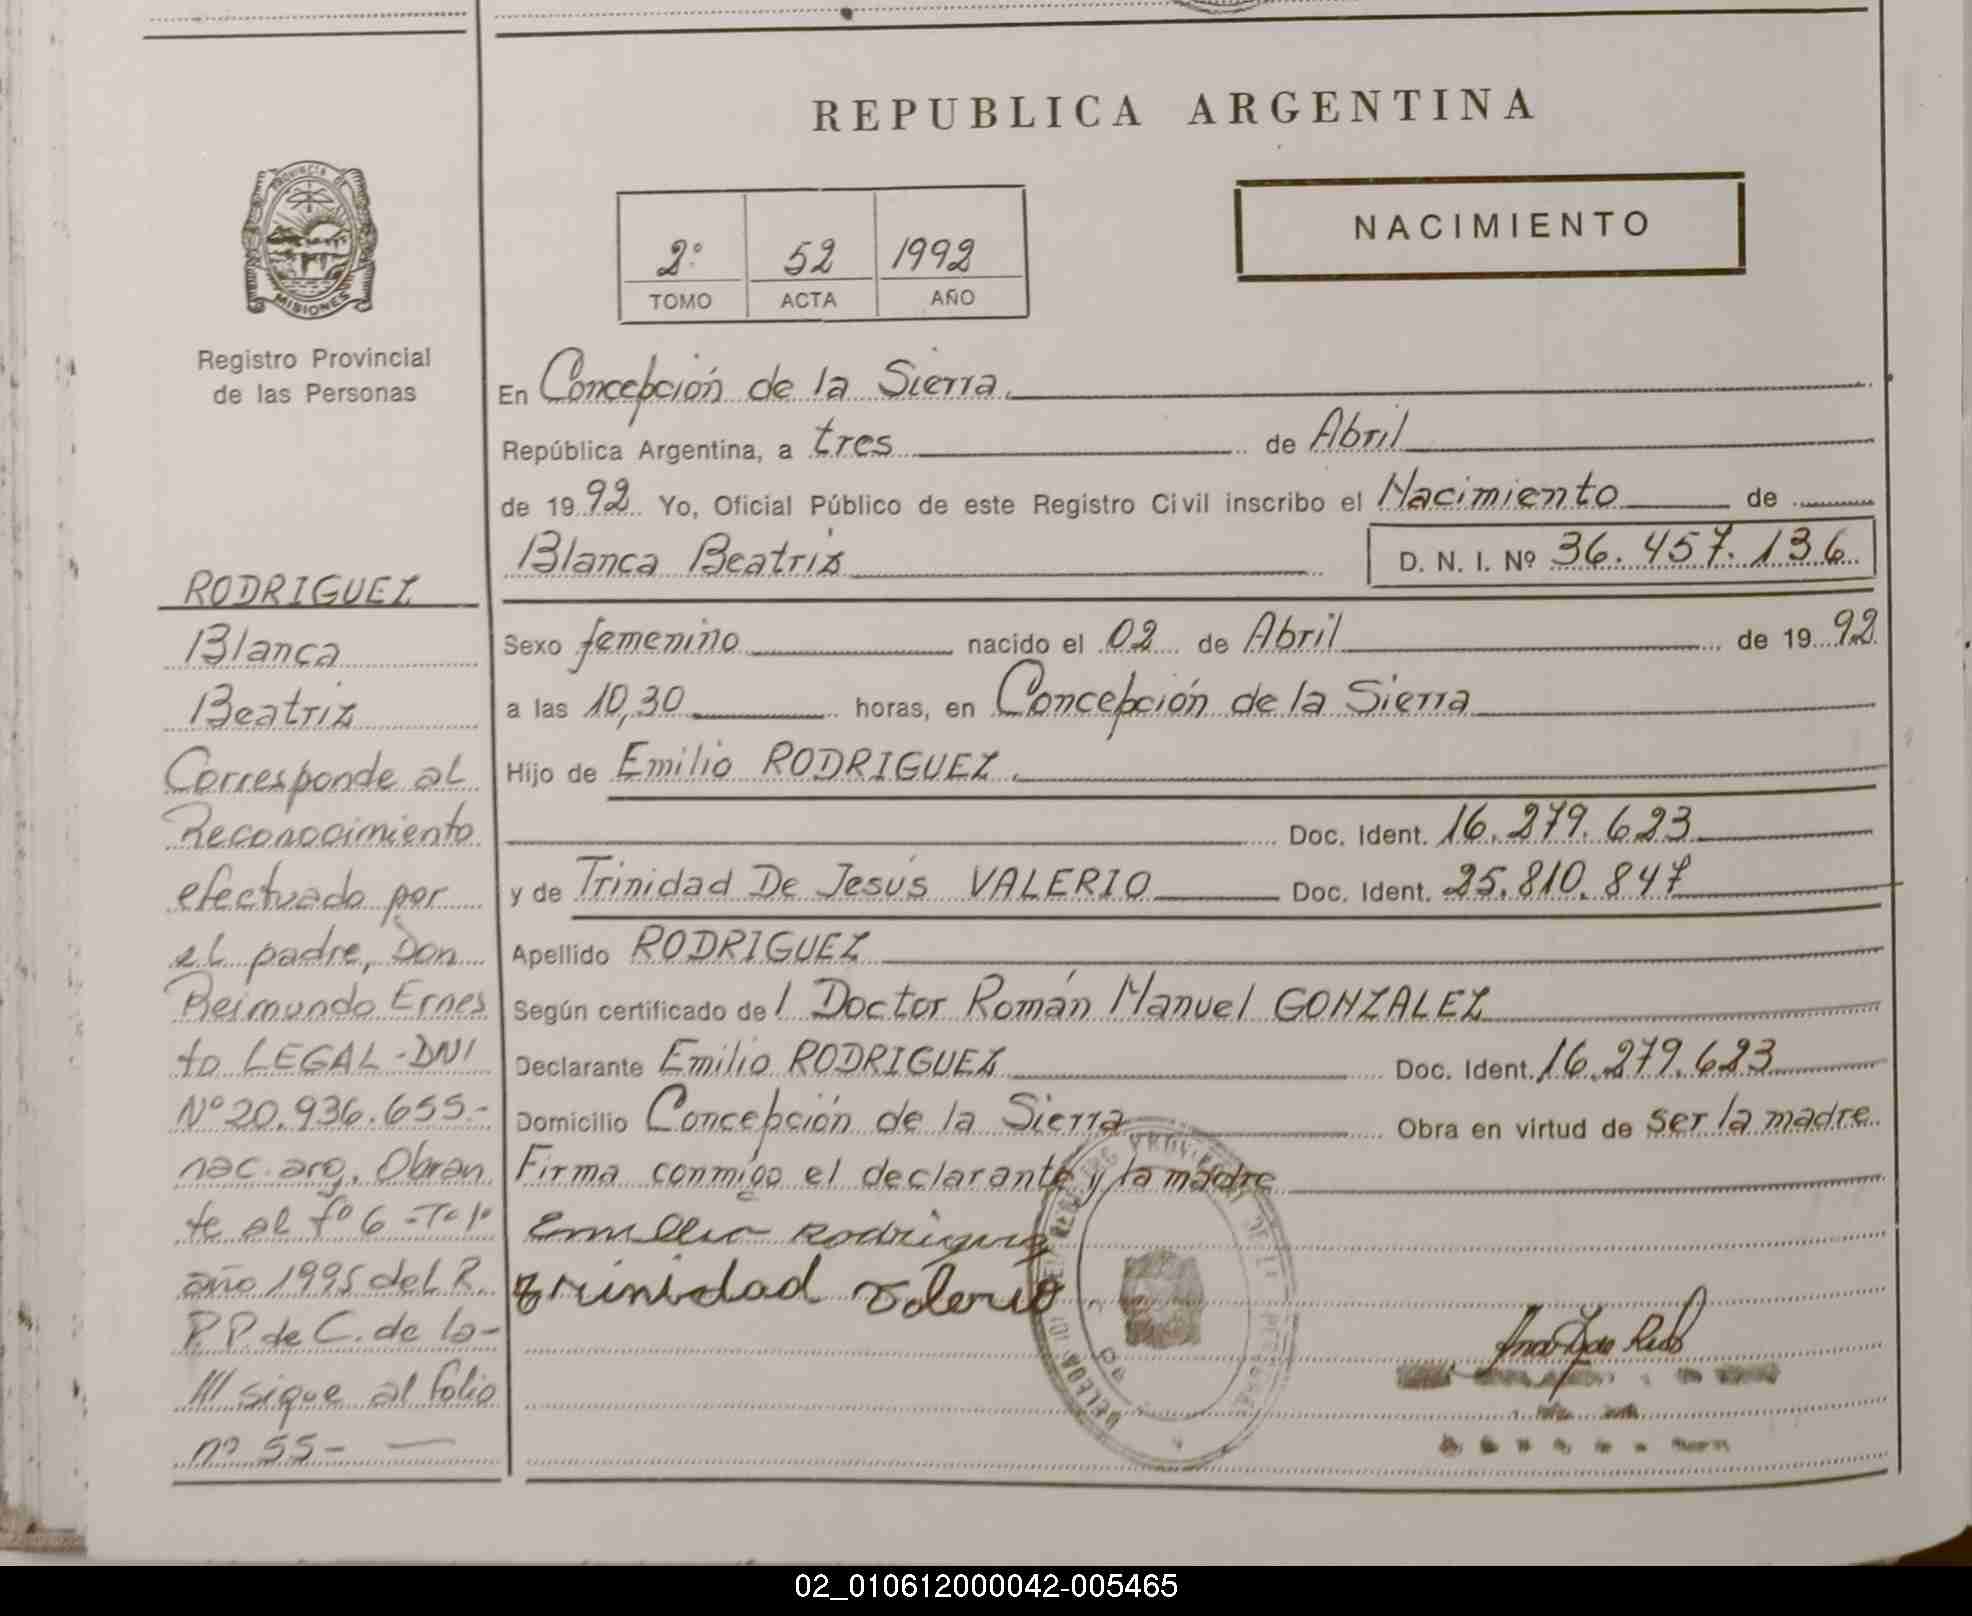 REPUBLICA ARGENTINA
PROVINCIA DE
MISIONES
Registro Provincial
de las Personas
NACIMIENTO
2º 52 1992
TOMO ACTA AÑO
En Concepción de la Sierra.
República Argentina, a tres de Abril
de 1992 Yo, Oficial Público de este Registro Civil inscribo el Nacimiento de
Blanca Beatriz D. N. I. Nº 36.457.136
Sexo femenino nacido el 02 de Abril de 1992
a las 10,30 horas, en Concepción de la Sierra
Hijo de Emilio RODRIGUEZ.
Doc. Ident. 16.279.623
y de Trinidad De Jesús VALERIO Doc. Ident. 25.810.847
Apellido RODRIGUEZ
Según certificado de l Doctor Román Manuel GONZALEZ
Declarante Emilio RODRIGUEZ Doc. Ident. 16.279.623
Domicilio Concepción de la Sierra Obra en virtud de ser la madre
Firma conmigo el declarante y la madre
Emilio Rodriguez
trinidad valerio
RODRIGUEZ
Blanca
Beatriz
Corresponde al
Reconocimiento
efectuado por
el padre, Don
Reimundo Ernes
to LEGAL-DNI
Nº 20.936.655-
nac. arg. Obran
te al fº 6-Tº 1º
año 1995 del R.
P.P. de C. de la-
/// sigue al folio
nº 55-
02_010612000042-005465